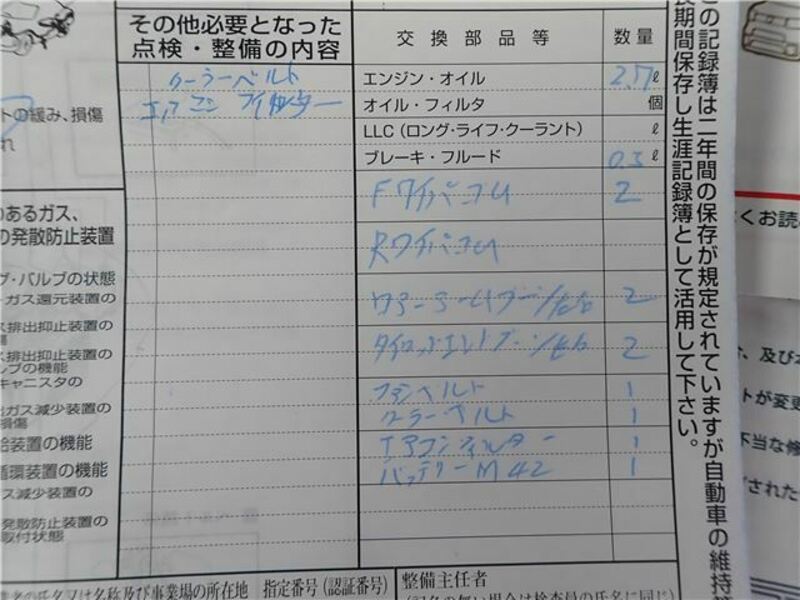 その他必要となった
点検・整備の内容
クーラーベルト
エアコン フィルター
交換部品等
数量
エンジン・オイル 2.7 ℓ
オイル・フィルタ 個
LLC(ロング・ライフ・クーラント) ℓ
ブレーキ・フルード 0.5 ℓ
Fワイパーゴム 2
Rワイパーゴム
ロアーアームブーツ 2
タイロッドエンドブーツ 2
ファンベルト 1
クーラーベルト 1
エアコンフィルター 1
バッテリー M42 1
トの緩み、損傷
れ
のあるガス、
の発散防止装置
グ・バルブの状態
ガス還元装置の
ス排出抑止装置の
傷
ス排出抑止装置の
ルブの機能
キャニスタの
出ガス減少装置の
損傷
給装置の機能
循環装置の機能
ス減少装置の
発散防止装置の
取付状態
の氏名又は名称及び事業場の所在地
指定番号(認証番号)
整備主任者
(記名の無い場合は検査員の氏名に同じ)
この記録簿は二年間の保存が規定されていますが自動車の維持
長期間保存し生涯記録簿として活用して下さい。
くお読
、及び
トが変更
不当な修
された